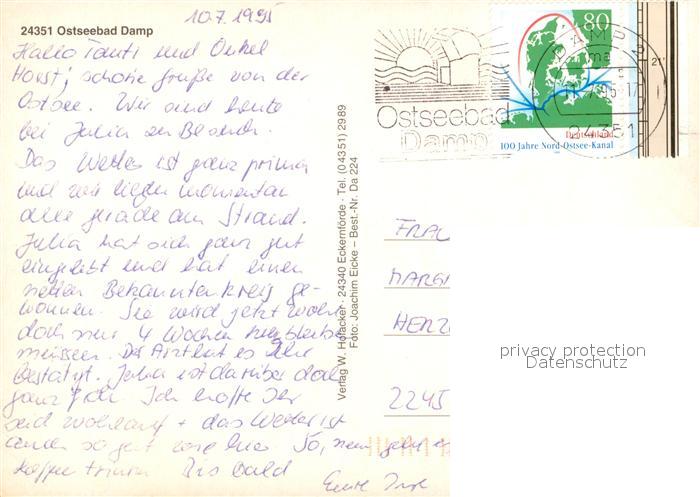 24351 Ostseebad Damp
10.7.1995
Hallo Tanti und Onkel
Horst, schöne Grüße von der
Ostsee. Wir sind heute
bei Julia zu Besuch.
Das Wetter ist ganz prima
und wir liegen momentan
alle gerade am Strand.
Julia hat sich ganz gut
eingelebt und hat einen
netten Bekanntenkreis ge-
wonnen. Sie wird jetzt wohl
doch nur 4 Wochen hierbleiben
müssen. Der Arzt hat es ihr
bestätigt. Julia ist darüber doch
ganz froh. Ich hoffe Ihr
seid wohlauf + das Wetter ist
auch so gut wie hier. So, nun
Kaffee trinken Bis bald
Eure
Verlag W. Hofacker · 24340 Eckernförde · Tel. (04351) 2989
Foto: Joachim Eicke – Best.-Nr. Da 224
Ostseebad
Damp
80
Deutschland
100 Jahre Nord-Ostsee-Kanal
DAMP
24351
21
FRAU
MARG
HERZ
2245
privacy protection
Datenschutz